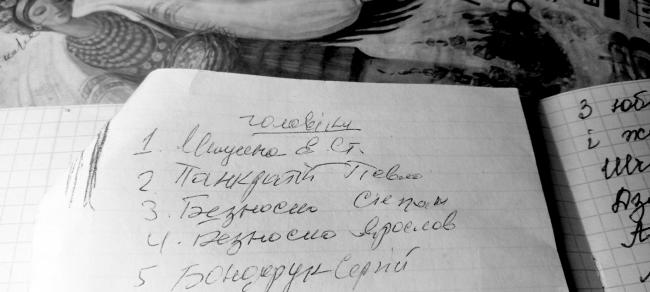 чоловіки
1. Мицина В Ст.
2 Панкратій Павло
3. Безноско Степан
4. Безноско Ярослав
5 Бондарук Сергій
З юб
і ж